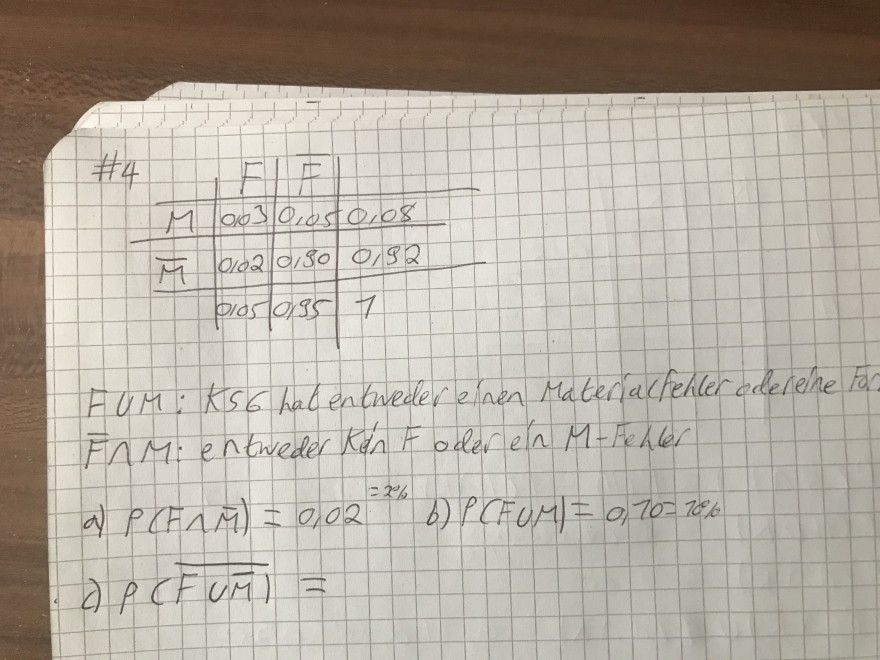 #4
F F̅
M 0,03 0,05 0,08
M̅ 0,02 0,90 0,92
0,05 0,95 1
F∪M: KSG hat entweder einen Materialfehler oder eine
F̅∩M: entweder kein F oder ein M-Fehler
a) P(F∩M̅) = 0,02 =2% b) P(F∪M)= 0,10=10%
c) P(F̅ ̅∪̅ ̅M̅) =